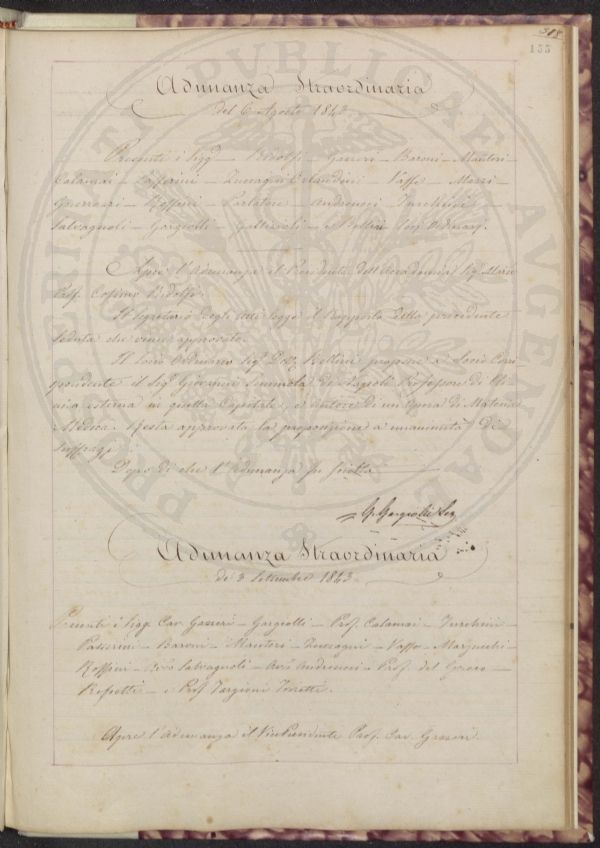 318
155
Adunanza Straordinaria
del 6 Agosto 1843
Presenti i Sigg. — Ridolfi — Gazzeri — Baroni — Manteri —
Calamai — Passerini — Zuccagni Orlandini — Vaffo — Marzi —
Guerrazzi — Roffini — Parlatore — Andreucci — Turchini —
Salvagnoli — Gargiolli — e Bettini
Apre l'Adunanza il Presidente dell'Accademia Sig. March.
Prof. Cosimo Ridolfi.
Il Segretario degli Atti legge il Rapporto della precedente
Seduta che viene approvato.
Il Socio Ordinario Sig. Dott. Bettini propone a Socio Corri-
spondente il Sig. Giovanni Semmola di Napoli Professore di Cli-
nica esterna in quella Capitale, e autore di un Opera di Materia
Medica. Resta approvata la proposizione a unanimità di
suffragj.
Dopo di che l'adunanza fu sciolta
G. Gargiolli Seg.
Adunanza Straordinaria
de 3 Settembre 1843
Presenti i Sigg. Cav. Gazzeri — Gargiolli — Prof. Calamai — Turchini —
Passerini — Baroni — Manteri — Zuccagni — Vaffo —
Roffini — Avv. Salvagnoli — Avv. Andreucci — Prof. del Greco —
Repetti — e Prof. Targioni Tozzetti.
Apre l'Adunanza il Vice Presidente Prof. Cav. Gazzeri.
PROSPERITATI PVBLICAE AVGENDAE